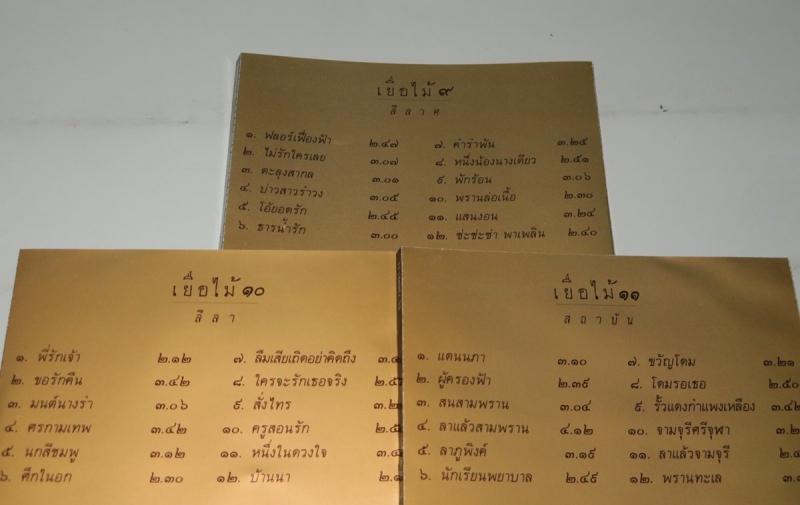 เยื่อไม้ ๙
ลีลาศ
๑. ฟลอร์เฟื่องฟ้า ๒.๔๗
๒. ไม่รักใครเลย ๓.๐๗
๓. ตะลุงสากล ๓.๐๑
๔. บ่าวสาวรำวง ๓.๐๕
๕. โอ้ยอดรัก ๒.๔๕
๖. ธารน้ำรัก ๓.๐๐
๗. คำรำพัน ๓.๒๕
๘. หนึ่งน้องนางเดียว ๒.๕๑
๙. พักร้อน ๓.๐๖
๑๐. พรานล่อเนื้อ ๒.๓๐
๑๑. แสนงอน ๓.๒๔
๑๒. ช่ะช่ะช่า พาเพลิน ๒.๔๐
เยื่อไม้ ๑๐
ลีลา
๑. พี่รักเจ้า ๒.๑๒
๒. ขอรักคืน ๓.๔๒
๓. มนต์นางรำ ๓.๐๖
๔. ศรกามเทพ ๓.๔๒
๕. นกสีชมพู ๓.๑๒
๖. ศึกในอก ๒.๓๐
๗. ลืมเสียเถิดอย่าคิดถึง
๘. ใครจะรักเธอจริง
๙. สั่งไทร
๑๐. ครูสอนรัก
๑๑. หนึ่งในดวงใจ
๑๒. บ้านนา
เยื่อไม้ ๑๑
สถาบัน
๑. แดนนภา ๓.๑๐
๒. ผู้ครองฟ้า ๒.๓๙
๓. สนสามพราน ๓.๐๔
๔. ลาแล้วสามพราน ๔.๑๒
๕. ลาภูพิงค์ ๓.๑๙
๖. นักเรียนพยาบาล ๒.๔๙
๗. ขวัญโดม ๓.๒๑
๘. โดมรอเธอ ๒.๕๐
๙. รั้วแดงกำแพงเหลือง
๑๐. จามจุรีศรีจุฬา
๑๑. ลาแล้วจามจุรี
๑๒. พรานทะเล